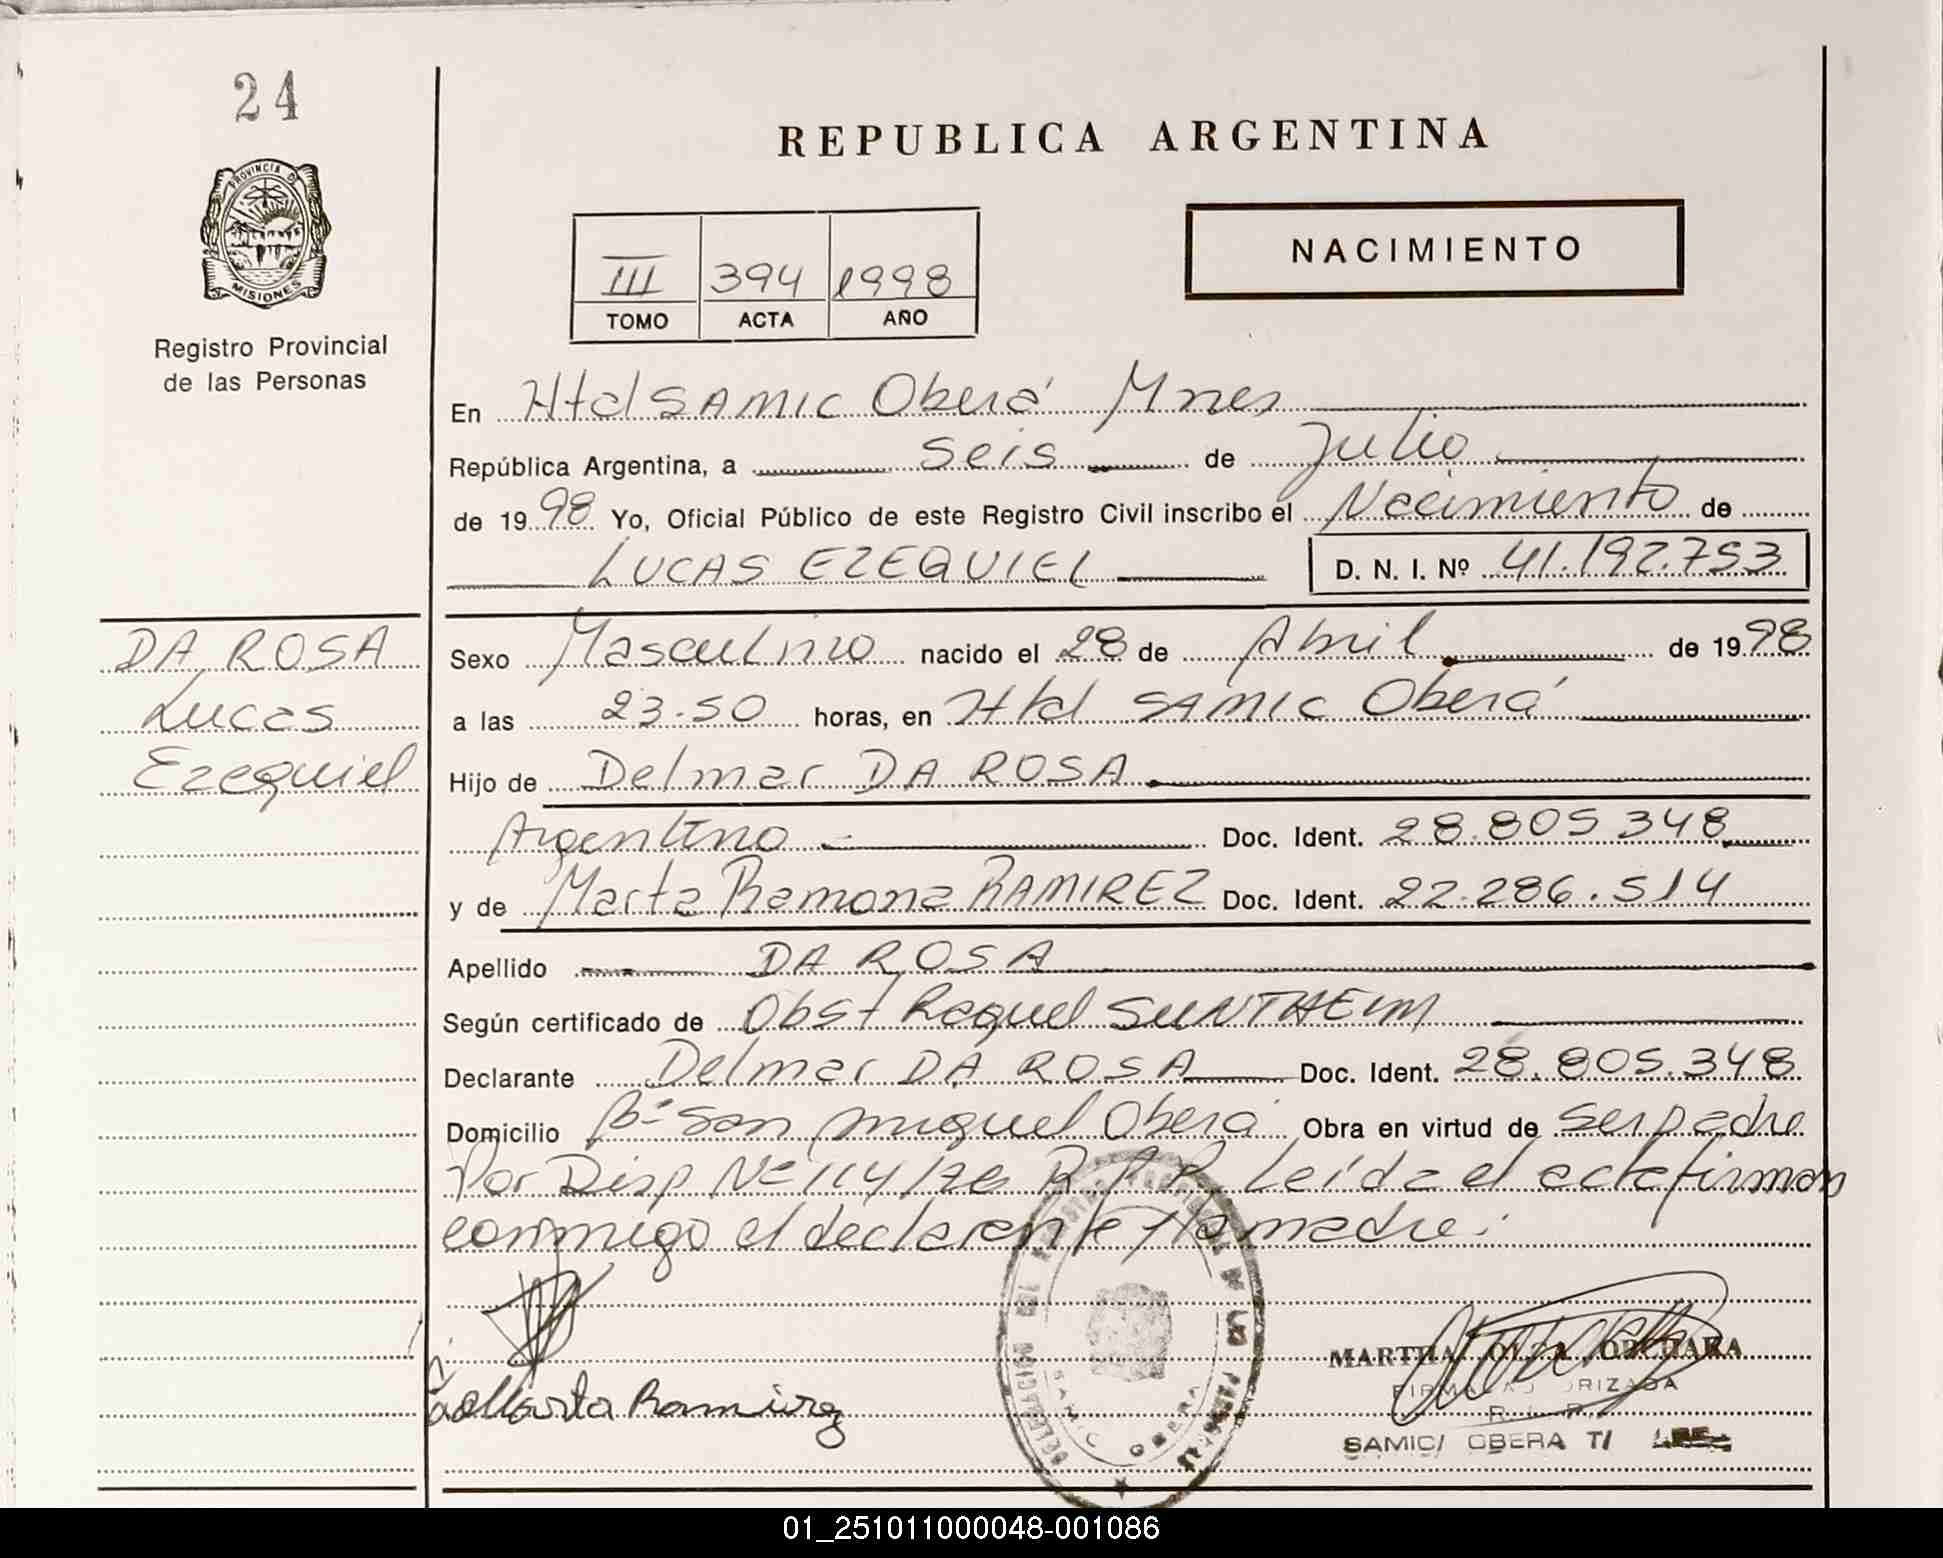 24
REPUBLICA ARGENTINA
PROVINCIA DE
MISIONES
Registro Provincial
de las Personas
III 394 1998
TOMO ACTA AÑO
NACIMIENTO
En Htal SAMIC Oberá Mnes
República Argentina, a seis de Julio
de 1998 Yo, Oficial Público de este Registro Civil inscribo el Nacimiento de
LUCAS EZEQUIEL D. N. I. Nº 41.192.753
DA ROSA
Lucas
Ezequiel
Sexo Masculino nacido el 28 de Abril de 1998
a las 23.50 horas, en Htal SAMIC Oberá
Hijo de Delmar DA ROSA
Argentino Doc. Ident. 28.805.348
y de Marta Ramona RAMIREZ Doc. Ident. 22.286.514
Apellido DA ROSA
Según certificado de Obst Raquel SUNTHEIM
Declarante Delmar DA ROSA Doc. Ident. 28.805.348
Domicilio Bº San Miguel Oberá Obra en virtud de ser padre
Por Disp Nº 114/76 R.P.P. Leída el acta firman
conmigo el declarante y la madre.
Marta Ramirez
MARTHA
SAMIC/ OBERA
01_251011000048-001086